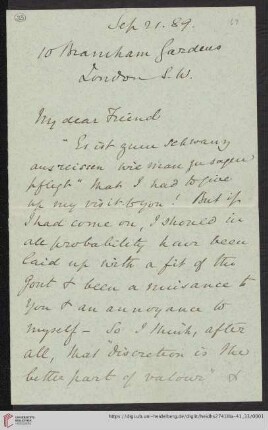 Sep 21. 89.
10 Bramham Gardens
London S.W.
My dear Friend
"Es ist zum Schwanz
ausreissen wie man zu sagen
pflegt" that I had to give
up my visit to you! But if
I had come on, I should in
all probability have been
laid up with a fit of the
Gout & been a nuisance to
you & an annoyance to
myself - So I think, after
all, that "discretion is the
better part of valour" &
UNIVERSITÄTS-
BIBLIOTHEK
HEIDELBERG